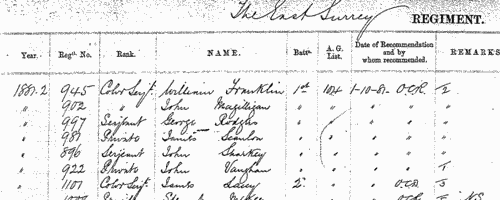 The East Surrey REGIMENT.
Year. Regtl. No. Rank. NAME. Batn. A. G. List. Date of Recommendation and by whom recommended. REMARKS
1881-2 945 Color Serjt. William Franklin 1st 104 1-10-81 O.C.R. 2
" 902 " John Magilligan " " " " "
" 997 Serjeant George Rodgers " " " "
" 987 Private James Scanlon " " " "
" 896 Serjeant John Sharkey " " " "
" 922 Private John Vaughan " " " "
" 1107 Color Serjt. James Lacey 2 " " O.C.R.